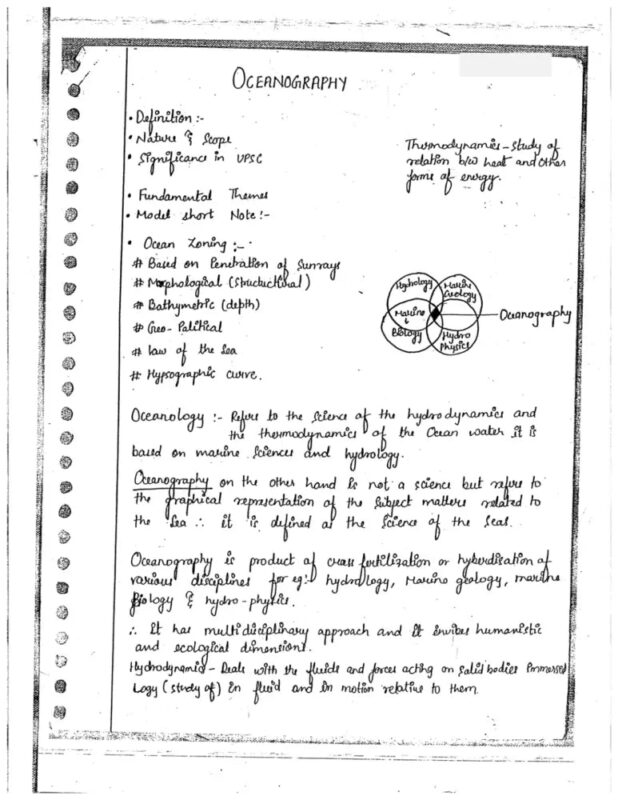 OCEANOGRAPHY
• Definition :-
• Nature & Scope
• Significance in UPSC
Thermodynamics - Study of
relation b/w heat and Other
forms of energy.
• Fundamental Themes
• Model short Note :-
• Ocean Zoning :-
# Based on Penetration of Sunrays
# Morphological (Structural)
# Bathymetric (depth)
# Geo-Political
# Law of the Sea
# Hypsographic curve.
Hydrology
Marine
Geology
Marine
Biology
Hydro
Physics
Oceanography
Oceanology :- Refers to the Science of the hydrodynamics and
the thermodynamics of the Ocean water it is
based on marine Sciences and hydrology.
Oceanography on the other hand is not a science but refers to
the graphical representation of the subject matters related to
the Sea ∴ it is defined as the Science of the Seas.
Oceanography is product of cross fertilization or hyberdisation of
various disciplines for eg:- hydrology, Marine geology, marine
Biology & hydro-physics.
∴ It has multidisciplinary approach and it invites humanistic
and ecological dimensions.
Hydrodynamic - Deals with the fluids and forces acting on Solid bodies immersed
Logy (study of) in fluid and in motion relative to them